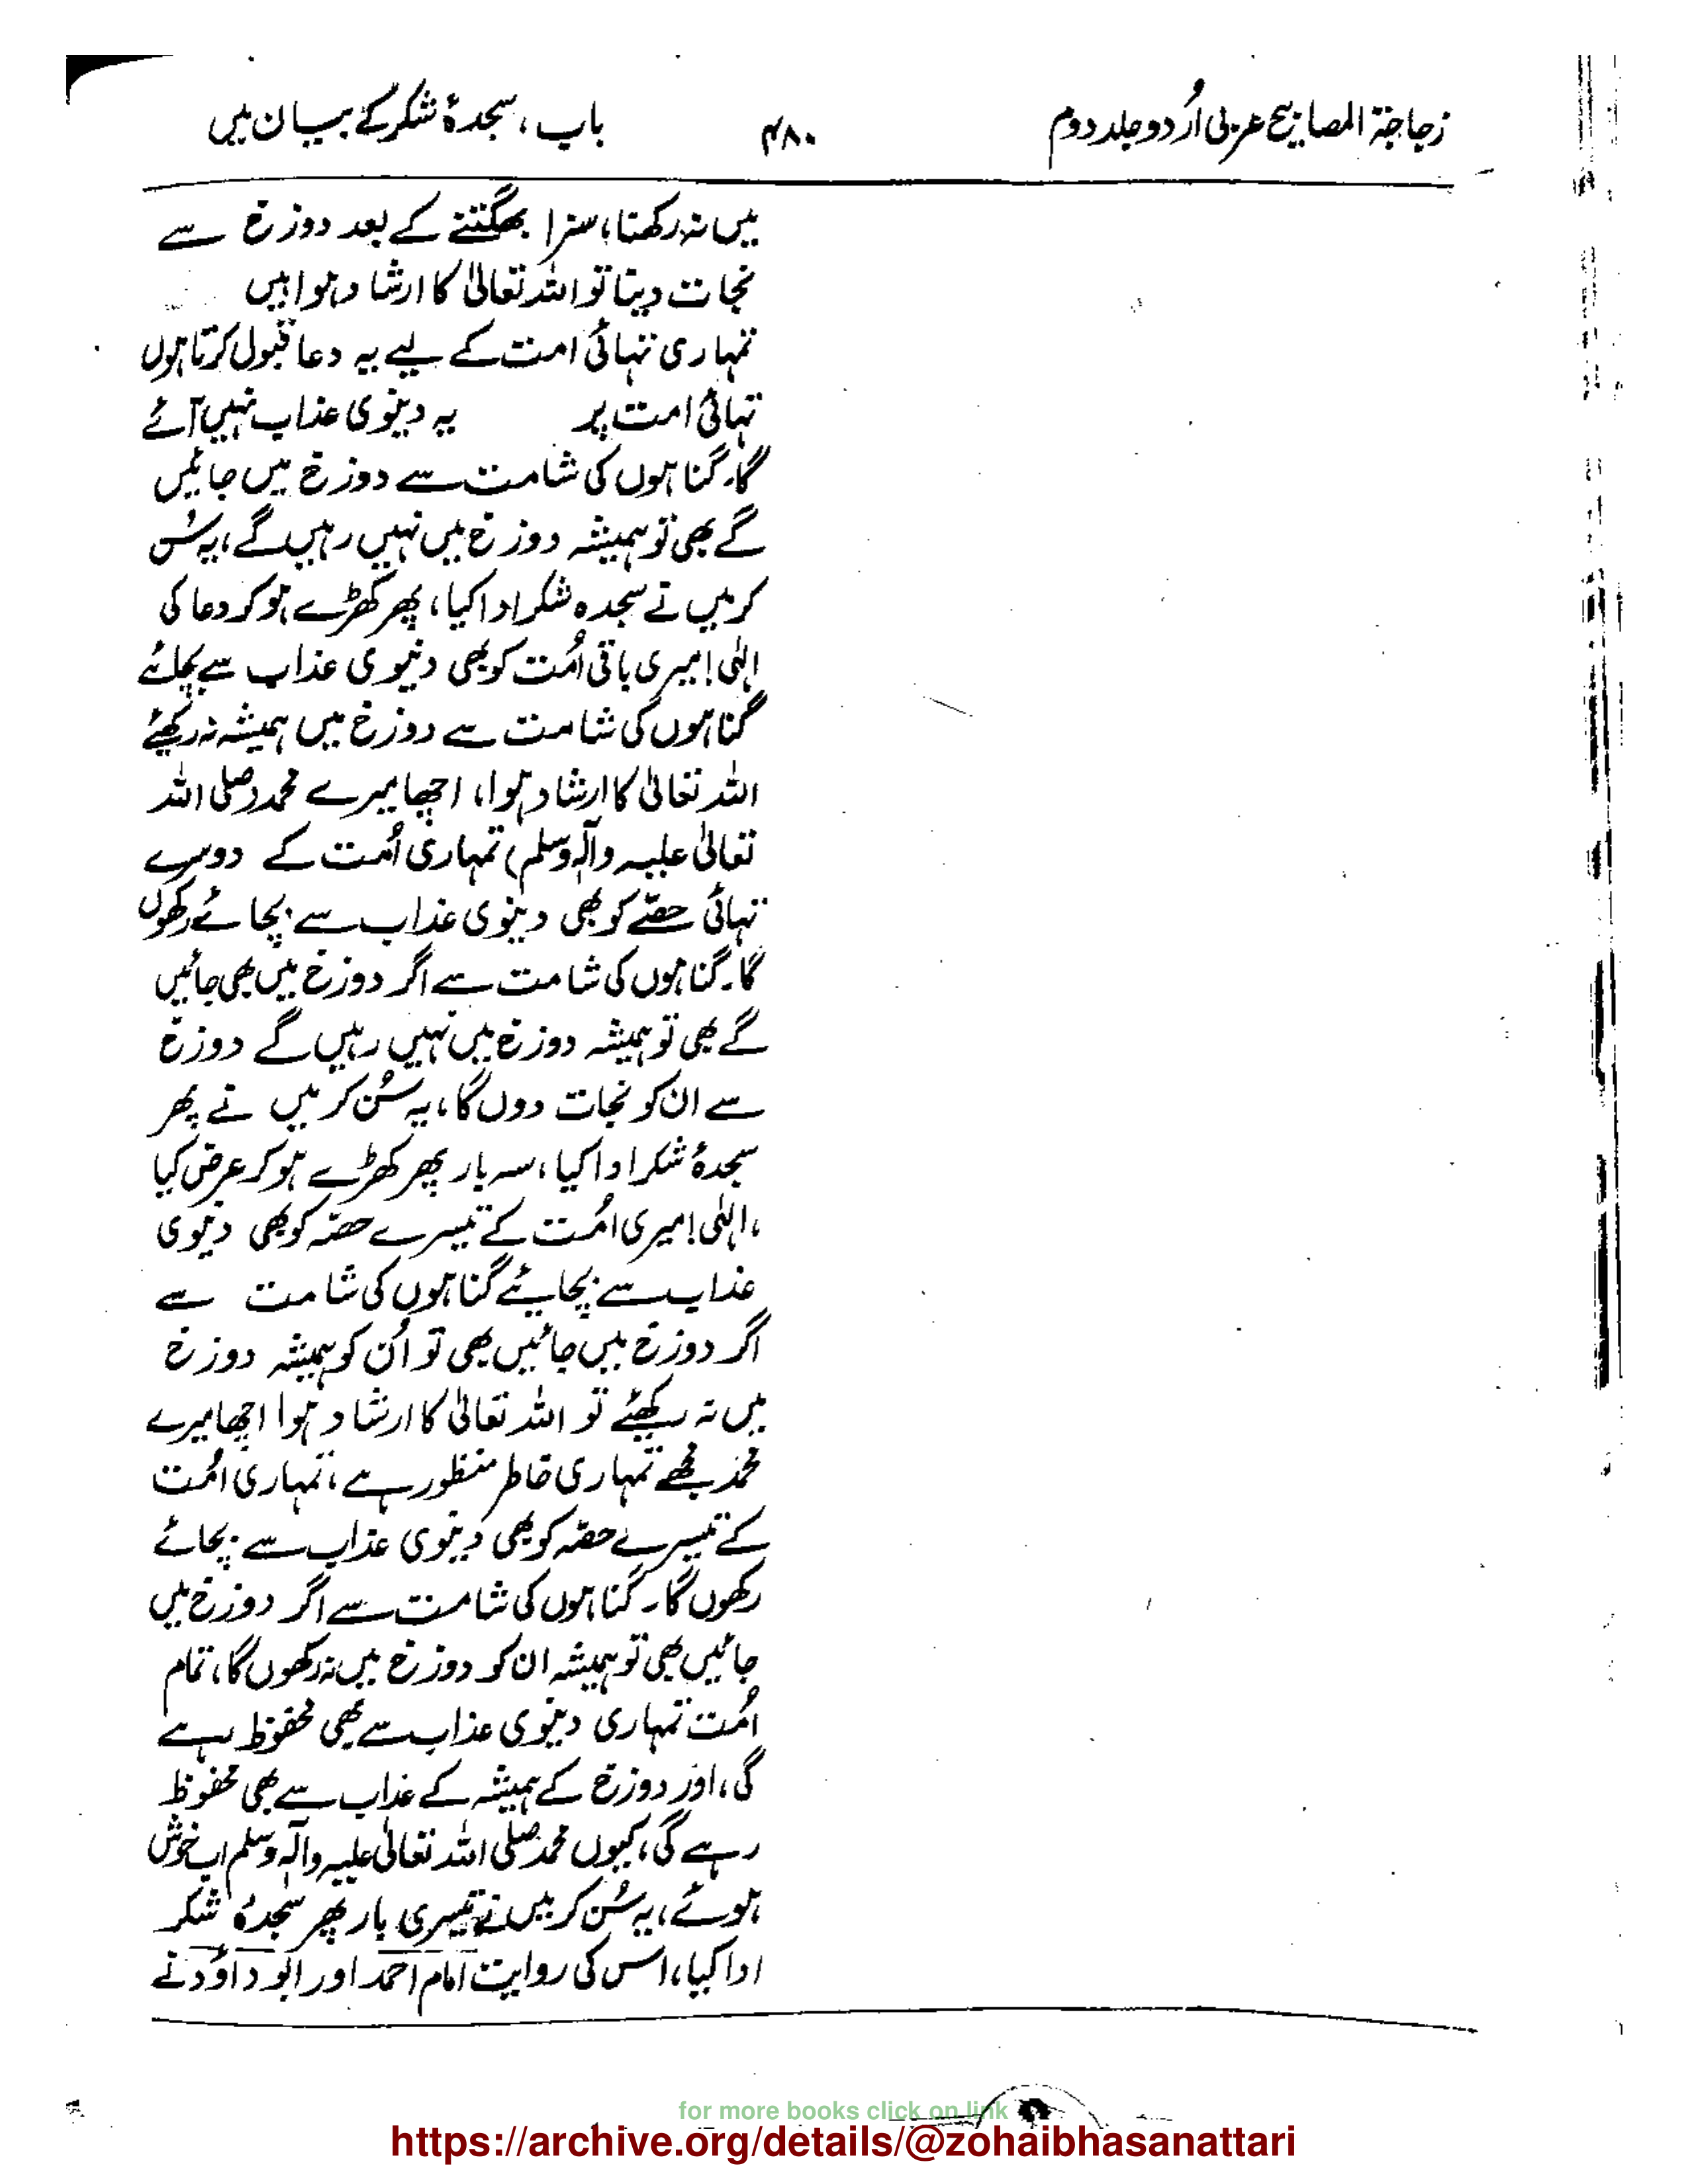 زجاجۃ المصابیح عربی اُردو جلد دوم ۴۸۰ باب، سجدۂ شکر کے بیان میں
میں نہ رکھنا، سزا بھگتنے کے بعد دوزخ سے
نجات دینا تو اللہ تعالیٰ کا ارشاد ہوا میں
تمہاری تہائی امت کے لیے یہ دعا قبول کرتا ہوں
تہائی امت پر یہ دینوی عذاب نہیں آئے
گا۔ گناہوں کی شامت سے دوزخ میں جائیں
گے بھی تو ہمیشہ دوزخ میں نہیں رہیں گے، یہ سُن
کر میں نے سجدہ شکر ادا کیا، پھر کھڑے ہو کر دعا کی
الٰہی! میری باقی اُمت کو بھی دنیوی عذاب سے بچائے
گناہوں کی شامت سے دوزخ میں ہمیشہ نہ رکھئے
اللہ تعالیٰ کا ارشاد ہوا، اچھا میرے محمد (صلی اللہ
تعالیٰ علیہ وآلہٖ وسلم) تمہاری اُمت کے دوسرے
تہائی حصّے کو بھی دینوی عذاب سے بچائے رکھوں
گا۔ گناہوں کی شامت سے اگر دوزخ میں بھی جائیں
گے بھی تو ہمیشہ دوزخ میں نہیں رہیں گے دوزخ
سے ان کو نجات دوں گا، یہ سُن کر میں نے پھر
سجدۂ شکر ادا کیا، سہ بار پھر کھڑے ہو کر عرض کیا
،الٰہی! میری امُت کے تیسرے حصّہ کو بھی دینوی
عذاب سے بچایئے گناہوں کی شامت سے
اگر دوزخ میں جائیں بھی تو اُن کو ہمیشہ دوزخ
میں نہ رکھئے تو اللہ تعالیٰ کا ارشاد ہوا اچھا میرے
محمد مجھے تمہاری خاطر منظور ہے، تمہاری امُت
کے تیسرے حصّہ کو بھی دینوی عذاب سے بچائے
رکھوں گا۔ گناہوں کی شامت سے اگر دوزخ میں
جائیں بھی تو ہمیشہ ان کو دوزخ میں نہ رکھوں گا، تمام
اُمت تمہاری دینوی عذاب سے بھی محفوظ رہے
گی، اور دوزخ کے ہمیشہ کے عذاب سے بھی محفوظ
رہے گی، کیوں محمد صلی اللہ تعالیٰ علیہ وآلہٖ وسلم اب خوش
ہوئے، یہ سُن کر میں نے تیسری بار پھر سجدۂ شکر
ادا کیا، اس کی روایت امام احمد اور ابو داؤد نے
for more books click on link
https://archive.org/details/@zohaibhasanattari